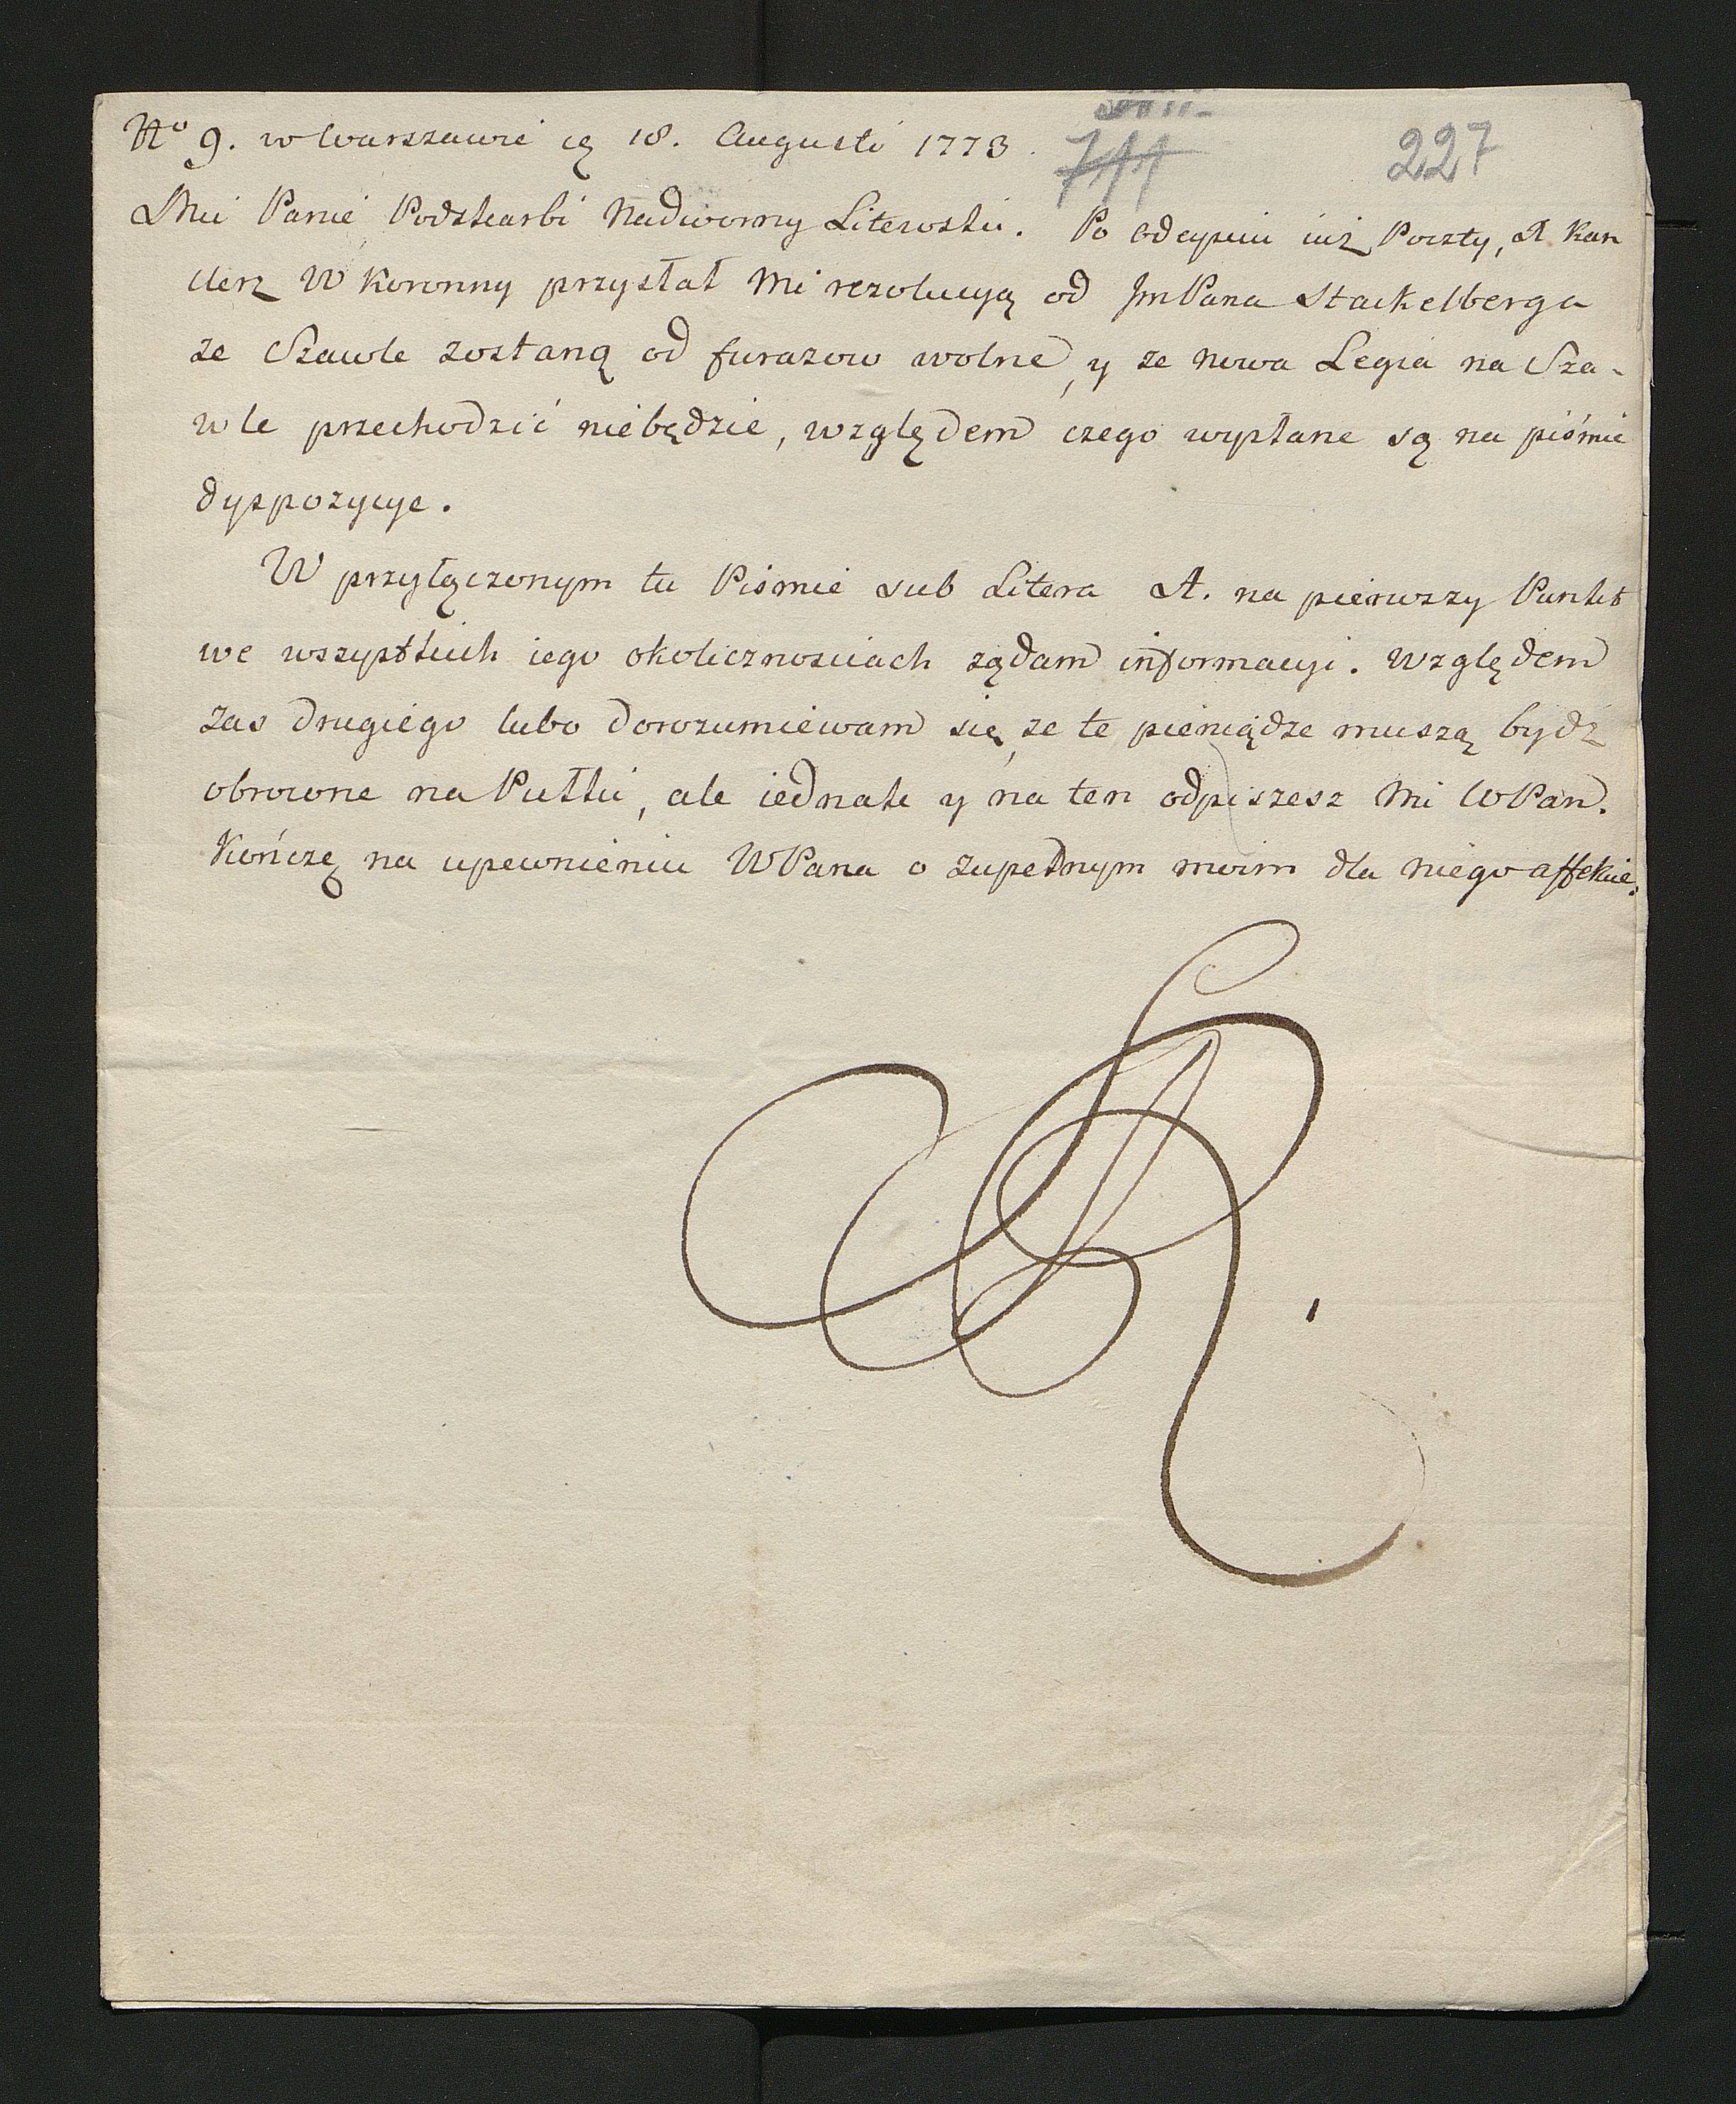 No 9. w Warszawie ię 18. Augusti 1773.
227
Mci Panie Podskarbi Nadworny Litewski. Po odeyściu iuż Poczty, X Kan
clerz W Koronny przysłał mi rezolucyą od JmPana Stackelberga
ze Szawle zostaną od furazow wolne, y ze nowa Legia na Sza-
wle przechodzić niebędzie, względem czego wysłane są na piśmie
dyspozycye.
W przyłączonym tu Piśmie sub Litera A. na pierwszy Punkt
we wszystkich iego okolicznosciach ządam informacyi. Względem
zas drugiego lubo dorozumiewam się, ze te pieniądze muszą bydz
obrocone na Pułki, ale iednak y na ten odpiszesz mi WPan.
Kończę na upewnieniu WPana o zupełnym moim dla niego affekcie.